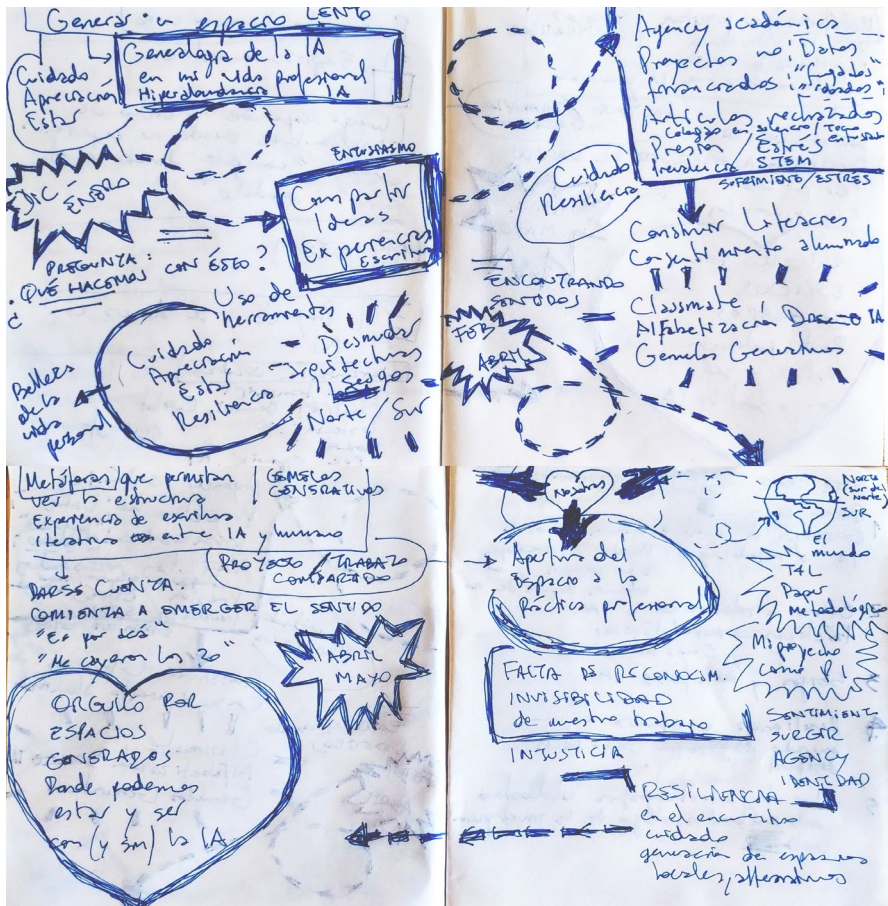 Generar un espacio LENTO
Cuidado
Apreciación
Estar
Genealogía de la IA
en mi vida profesional
Hiperabundancia IA
DIC
ENERO
ENTUSIASMO
Compartir
Ideas
Experiencias
Escritura
PREGUNTA:
¿QUÉ HACEMOS CON ESTO?
Uso de
herramientas
Belleza
de la
vida
personal
Cuidado
Apreciación
Estar
Resiliencia
Desnudar
arquitecturas
Sesgos
Norte / Sur
Agency académica
Proyectos no
financiados
Datos
"fugados"
"robados"
Artículos rechazados
Colegas en silencio /
Presión / Estrés
STEM
SUFRIMIENTO/ESTRÉS
Cuidado
Resiliencia
Construir
Consentimiento alumnado
ENCONTRANDO
SENTIDOS
FEB
ABRIL
Classmate
Alfabetización IA
Gemelos Generativos
Metáforas que permitan
ver la estructura
Experiencia de escritura
iterativa entre IA y humano
GEMELOS
GENERATIVOS
PROYECTO / TRABAJO
COMPARTIDO
DARSE CUENTA
COMIENZA A EMERGER EL SENTIDO
"Es por acá"
"Me cayeron los 20"
ABRIL
MAYO
ORGULLO POR
ESPACIOS
GENERADOS
Donde podemos
estar y ser
con (y sin) la IA
Nosotras
Apertura del
Espacio a la
Práctica profesional
NORTE
(Sur del
Norte)
SUR
El
mundo
T4L
Paper
Metodológico
Mi proyecto
como PI
FALTA DE RECONOCIM.
INVISIBILIDAD
de nuestro trabajo
INJUSTICIA
SENTIMIENTO
SURGIR
AGENCY
IDENTIDAD
RESILIENCIA
en el encuentro
cuidado
generación de espacios
locales, alternativos